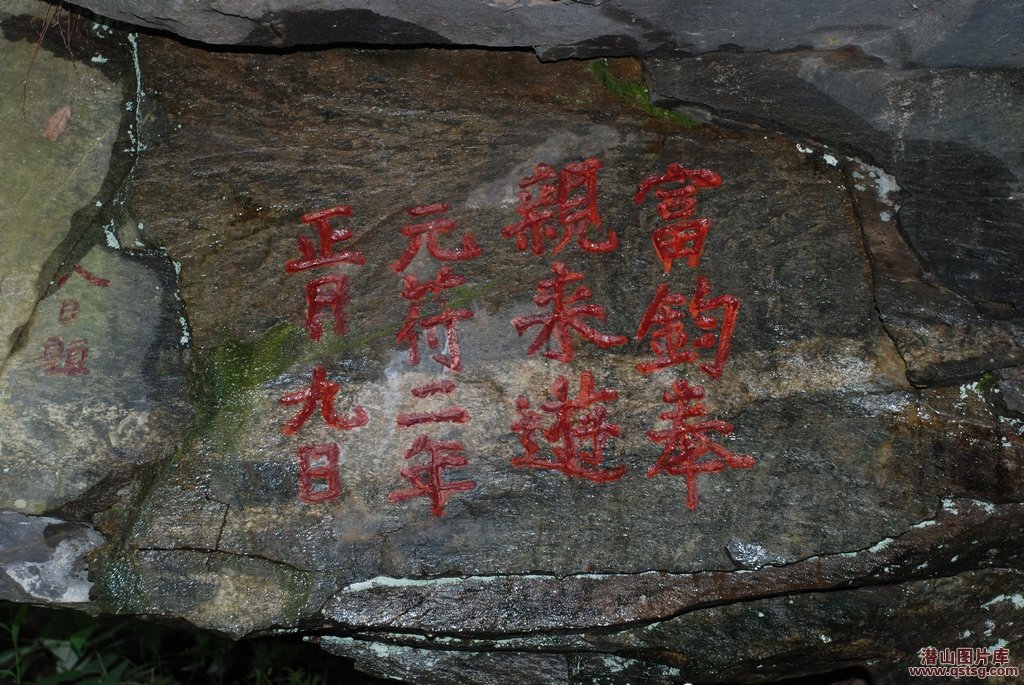 富鈞奉
親来遊
元符二年
正月九日
八日題
潜山图片库
www.qstsg.com